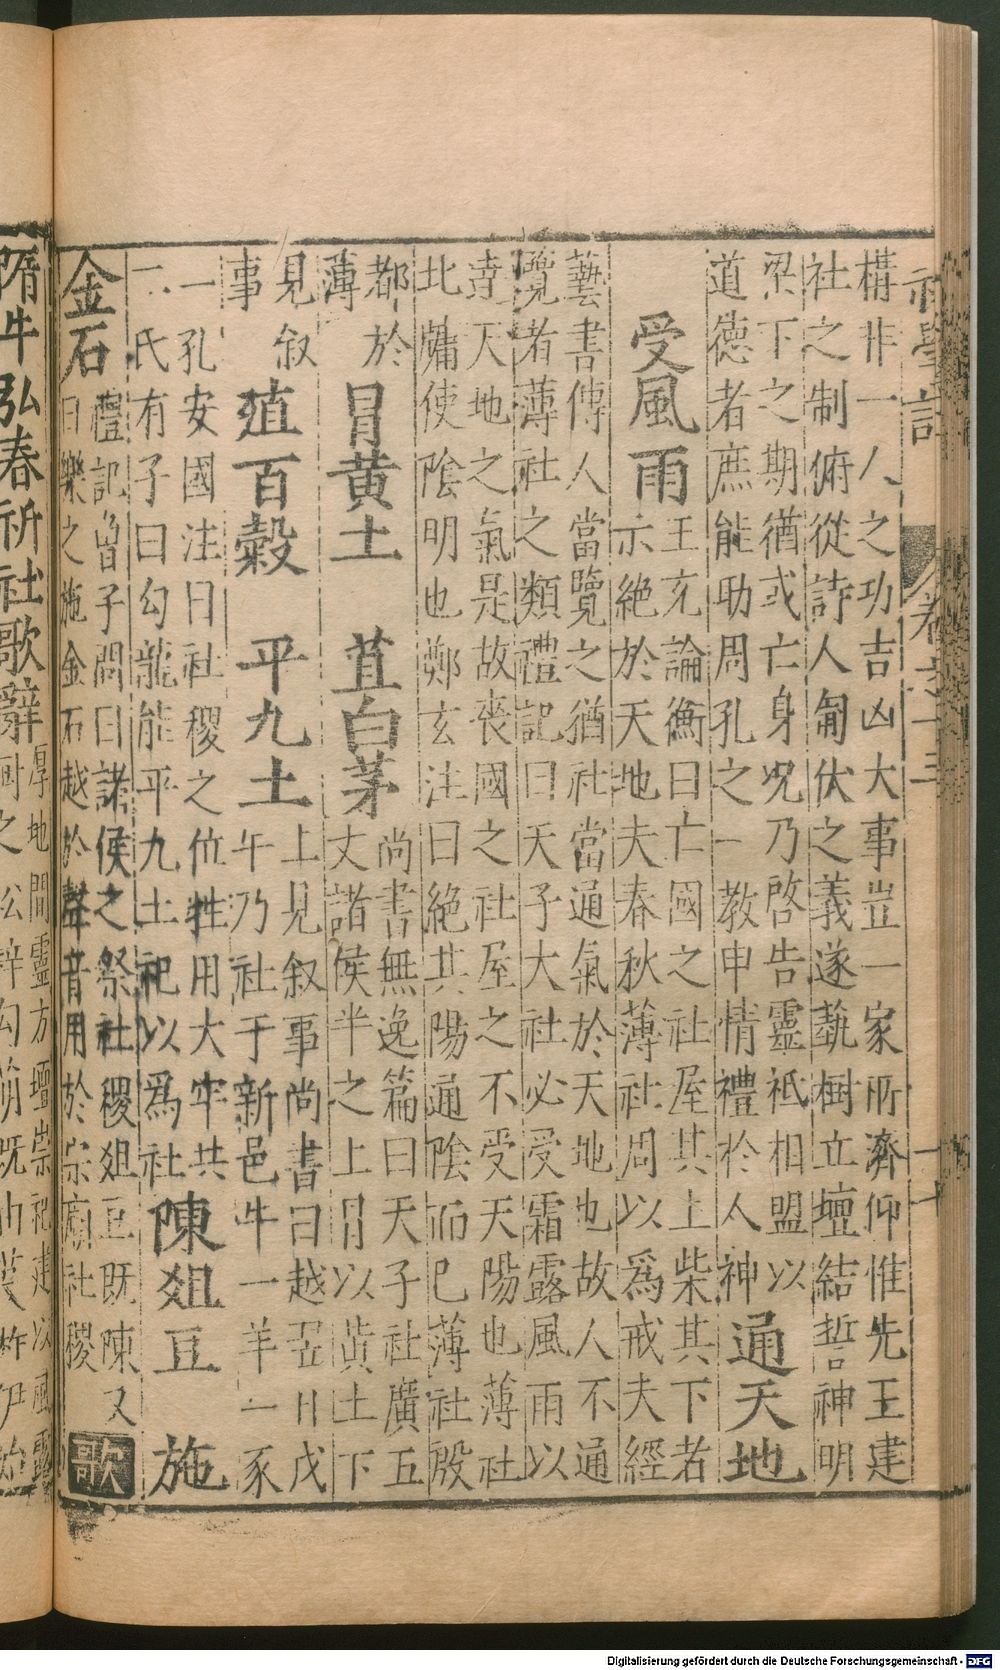 初學記 卷十三
構非一人之功吉凶大事豈一家所濟仰惟先王建
社之制俯從詩人匍伏之義遂蓺樹立壇結哲神明
梁下之期猶或亡身呪乃啓告靈祗相盟以
道德者庶能助周孔之一教申情禮於人神
通天地
受風雨
王充論衡曰亡國之社屋其上柴其下者
示絶於天地夫春秋薄社周以爲戒夫經
藝書傳人當覽之猶社當通氣於天地也故人不通
覽者薄社之類禮記曰天子大社必受霜露風雨以
達天地之氣是故喪國之社屋之不受天陽也薄社
北牖使陰明也鄭玄注曰絶其陽通陰而已薄社殷
都於
薄
冒黄土 苴白茅
尚書無逸篇曰天子社廣五
丈諸侯半之上冒以黄土下
見叙
事
殖百穀 平九土
上見叙事尚書曰越翌日戊
午乃社于新邑牛一羊一豕
一孔安國注曰社稷之位牲用大牢共
二氏有子曰勾龍能平九土祀以爲社
陳俎豆 施
金石
禮記曽子問曰諸侯之祭社稷俎豆既陳又
曰樂之施金石越於聲音用於宗廟社稷
歌
隋牛弘春祈社歌辭
厚地開靈方壇崇祀建以風露
樹之松梓勾萌既申芟柞伊始
Digitalisierung gefördert durch die Deutsche Forschungsgemeinschaft - DFG